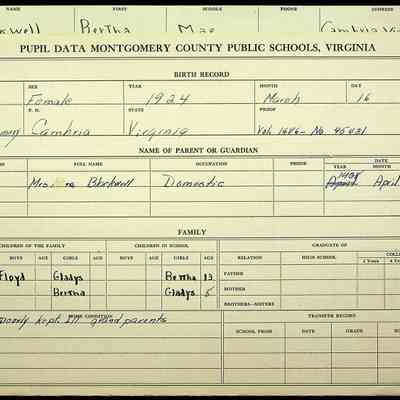 NAME FIRST MIDDLE PHONE ADDRESS
kwell Bertha Mae Cambria Vi
PUPIL DATA MONTGOMERY COUNTY PUBLIC SCHOOLS, VIRGINIA
BIRTH RECORD
SEX YEAR MONTH DAY
Female 1924 March 16
P. O. STATE PROOF
Cambria Virginia Vol. 1686- No 45431
NAME OF PARENT OR GUARDIAN
FULL NAME OCCUPATION PROOF DATE
YEAR MONTH
Mrs. Blackwell Domestic 1938 April
FAMILY
CHILDREN OF THE FAMILY CHILDREN IN SCHOOL GRADUATE OF
BOYS AGE GIRLS AGE BOYS AGE GIRLS AGE RELATION HIGH SCHOOL COLL
2 Years 4 Y
Floyd Gladys Bertha 13 FATHER
Bertha Gladys 5 MOTHER
BROTHERS—SISTERS
HOME CONDITION TRANSFER RECORD
Poorly kept. Ill grand parents
SCHOOL FROM DATE GRADE SC